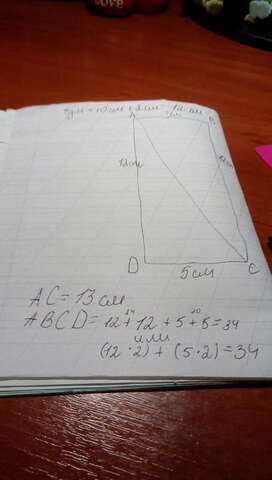 10 см + 2 см = 12 см
A B
12 см
D 5 см C
AC = 13 см
ABCD = 12 + 12 + 5 + 5 = 34
или
(12 · 2) + (5 · 2) = 34